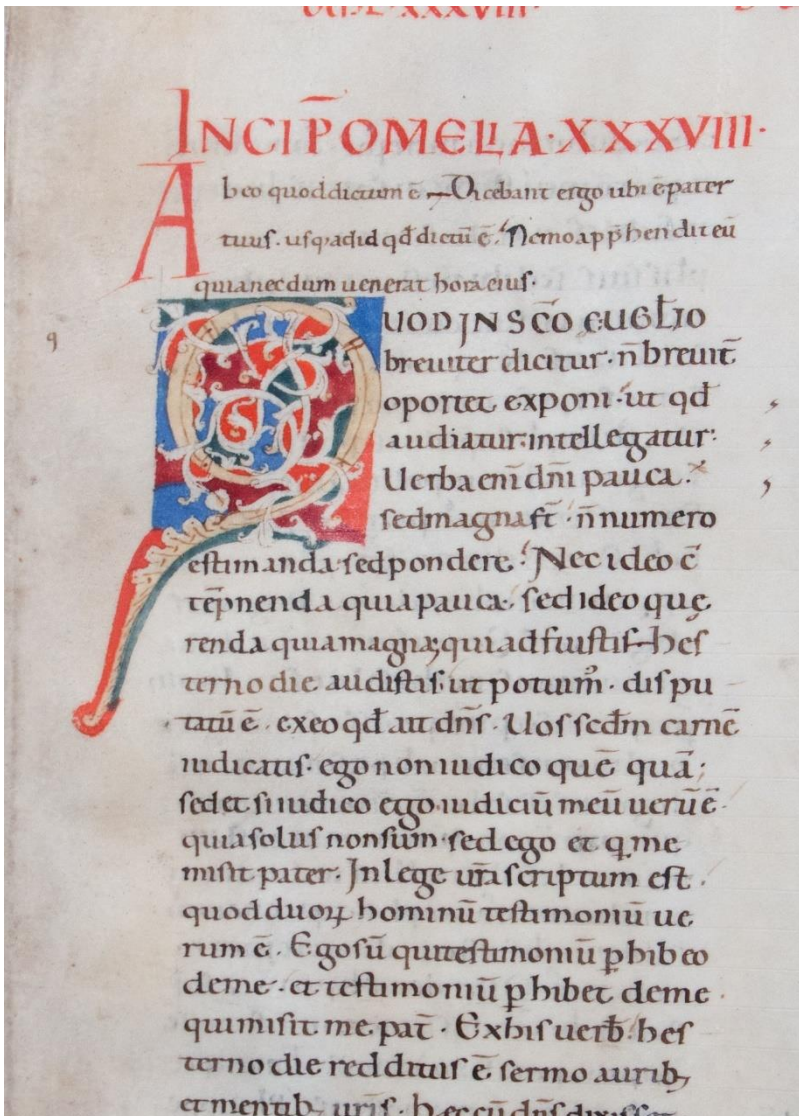 OMEL·XXXVIII·
INCIP̄ OMELIA·XXXVIII·
Ab eo quod dictum ē Dicebant ergo ubi ē pater
tuus. usq; ad id qđ dictū ē. Nemo app̄hendit eū
quia necdum uenerat hora eius.
QUOD IN SC̄O EUGL̄IO
breuiter dicitur. n̄ breuit̄
oportet exponi. ut qđ
audiatur. intellegatur.
Uerba eni dn̄i pauca.
sed magna st̄. n̄ numero
estimanda. sed pondere. Nec ideo ē
tēpnenda quia pauca. sed ideo quę
renda quia magna; qui adfuistis hes
terno die audistis. ut potuim᷒. dispu
tatū ē. ex eo qđ ait dn̄s. Uos scđm carnē
iudicatis. ego non iudico quē quā;
sed et si iudico ego. iudiciū meū uerū ē.
quia solus non sum. sed ego et q̇ me
misit pater. In lege ur̄a scriptum est.
quod duoꝝ hominū testimoniū ue
rum ē. Ego sū qui testimoniū ꝑhibeo
de me. et testimoniū ꝑhibet de me
qui misit me pat̄. Ex his uerb̄. hes
terno die redditus ē sermo aurib;
et mentib; ur̄is. hec cū dn̄s dixisset